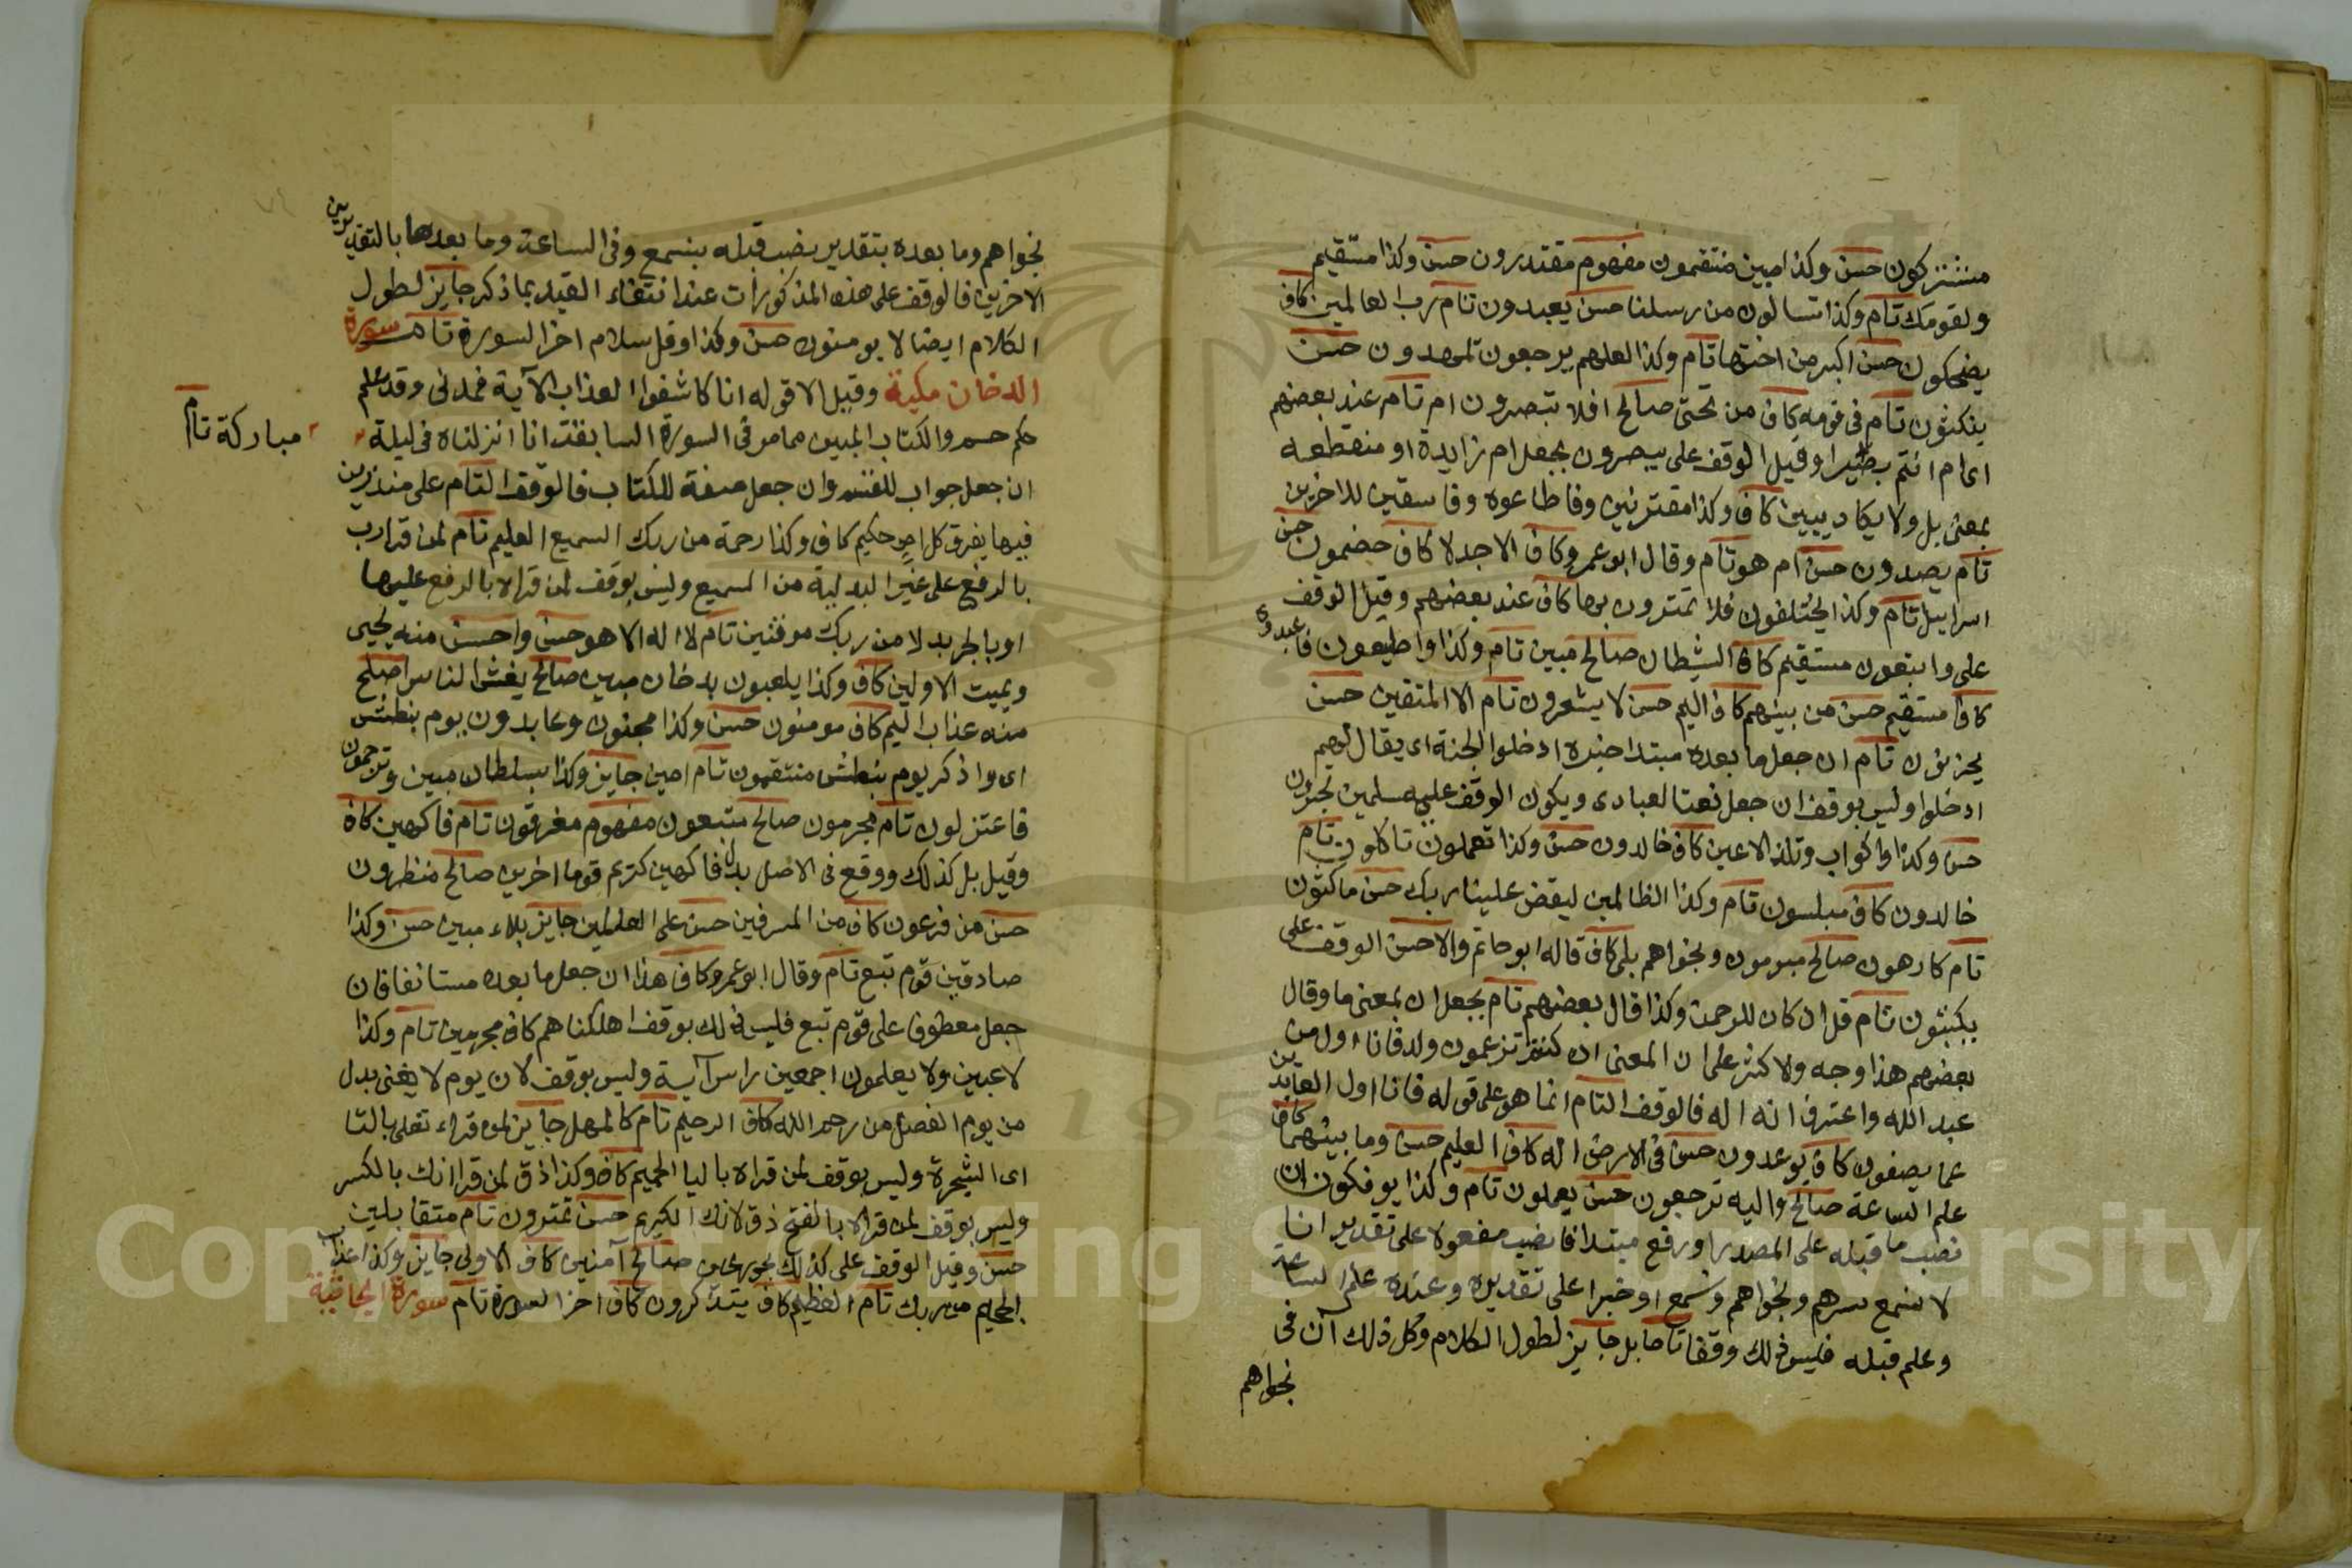 مشتركون حسن وكذا مبين منتقمون مفهوم مقتدرون حسن وكذا مستقيم
ولقومك تام وكذا تسالون من رسلنا حسن يعبدون تام رب العالمين كاف
يضحكون حسن اكبر من اختها تام وكذا لعلهم يرجعون لمهتدون حسن
ينكثون تام في قومه كاف من تحتي صالح افلا تبصرون ام تام عند بعضهم
اى ام انتم بصرا وقيل الوقف على يبصرون بجعل ام زايدة او منقطعه
بمعنى بل ولا يكاد يبين كاف وكذا مقترنين وفاطاعوه وفاسقين للاخرين
تام يصدون حسن ام هو تام وقال ابو عمرو كاف الا جدلا كاف خصمون حسن
اسراييل تام وكذا يخلفون فلا تمترون بها كاف عند بعضهم وقيل الوقف
على واتبعون مستقيم كاف الشيطان صالح مبين تام وكذا واطيعون فاعبدوه
كاف مستقيم حسن من بينهم كاف اليم حسن لا يشعرون تام الا المتقين حسن
يحزنون تام ان جعل ما بعده مبتدا خبره ادخلوا الجنة اى يقال لهم
ادخلوا وليس بوقف ان جعل نعتا لعبادى ويكون الوقف عليه مسلمين تحبرون
حسن وكذا واكواب وتلذ الاعين كاف خالدون حسن وكذا تعملون تاكلون تام
خالدون كاف مبلسون تام وكذا الظالمين ليقض علينا ربك حسن ماكثون
تام كارهون صالح مبرمون ونجواهم بلى كاف قاله ابو حاتم والاحسن الوقف على
يكتبون تام قل ان كان للرحمن وكذا قال بعضهم تام بجعل ان بمعنى ما وقال
بعضهم هذا وجه والاكثر على ان المعنى ان كنتم تزعمون ولد فانا اول من
عبد الله واعترف انه اله فالوقف التام انما هو على قوله فانا اول العابدين
عما يصفون كاف يوعدون حسن في الارض اله كاف العليم حسن وما بينهما كاف
علم الساعة صالح واليه ترجعون حسن يعملون تام وكذا يوفكون ان
نصب ما قبله على المصدر او رفع مبتدا فانصب مفعولا على تقدير انا
لا نسمع سرهم ونجواهم ونسمع او خبرا على تقديره وعنده علم الساعة
وعلم قبله فليس ذلك وقفا تاما بل جايز لطول الكلام وكل ذلك آت في
نجواهم
نجواهم وما بعده بتقدير نصب قبله بنسمع وفي الساعة وما بعدها بالتقديرين
الاخرين فالوقف على هذه المذكورات عند انتفاء القيد بما ذكر جايز لطول
الكلام ايضا لا يومنون حسن وكذا وقل سلام اخر السورة تام سورة
الدخان مكية وقيل الا قوله انا كاشفوا العذاب الآية فمدني وقد علم
حكم حم والكتاب المبين مما مر في السورة السابقة انا انزلناه في ليلة
مباركة تام
ان جعل جواب للقسم وان جعل صفة للكتاب فالوقف التام على منذرين
فيها يفرق كل امر حكيم كاف وكذا رحمة من ربك السميع العليم تام لمن قرا رب
بالرفع على غير البدلية من السميع وليس بوقف لمن قراه بالرفع عليها
او بالجر بدلا من ربك موقنين تام لا اله الا هو حسن واحسن منه يحيى
ويميت الاولين كاف وكذا يلعبون بدخان مبين صالح يغشى الناس اصلح
منه عذاب اليم كاف مومنون حسن وكذا مجنون وعايدون يوم نبطش
اى واذكر يوم نبطش منتقمون تام امين جايز وكذا بسلطان مبين وترجمون
فاعتزلون تام مجرمون صالح متبعون مفهوم مغرقون تام فاكهين كاف
وقيل بل كذلك ووقع في الاصل بدل فاكهين كريم قوما اخرين صالح منظرون
حسن من فرعون كاف من المسرفين حسن على العالمين جايز بلاء مبين حسن وكذا
صادقين قوم تبع تام وقال ابو عمرو كاف هذا ان جعل ما بعده مستانفا فان
جعل معطوفا على قوم تبع فليس ذلك بوقف اهلكناهم كاف مجرمين تام وكذا
لاعبين ولا يعلمون اجمعين راس آية وليس بوقف لان يوم لا يغنى بدل
من يوم الفصل من رحم الله كاف الرحيم تام كالمهل جايز لمن قراء تغلى بالتا
اى الشجرة وليس بوقف لمن قراه باليا الحميم كاف وكذا ذق لمن قرا انك بالكسر
وليس بوقف لمن قراه بالفتح ذق لانك الكريم حسن تمترون تام متقابلين
حسن وقيل الوقف على كذلك بحور عين صالح آمنين كاف الاولى جايز وكذا عذاب
الجحيم من ربك تام العظيم كاف يتذكرون كاف اخر السورة تام سورة الجاثية
Copyright © King Saud University
195